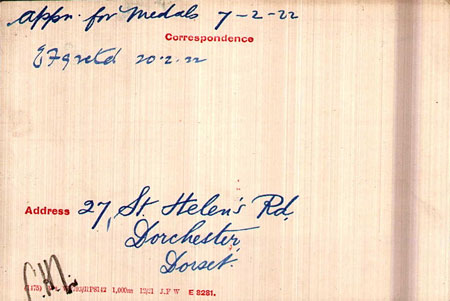 Appn. for Medals 7-2-22
Correspondence
EF9 retd 20.2.22
Address 27, St. Helen's Rd,
Dorchester,
Dorset.
1,000m 1221 J.P W E 8281.